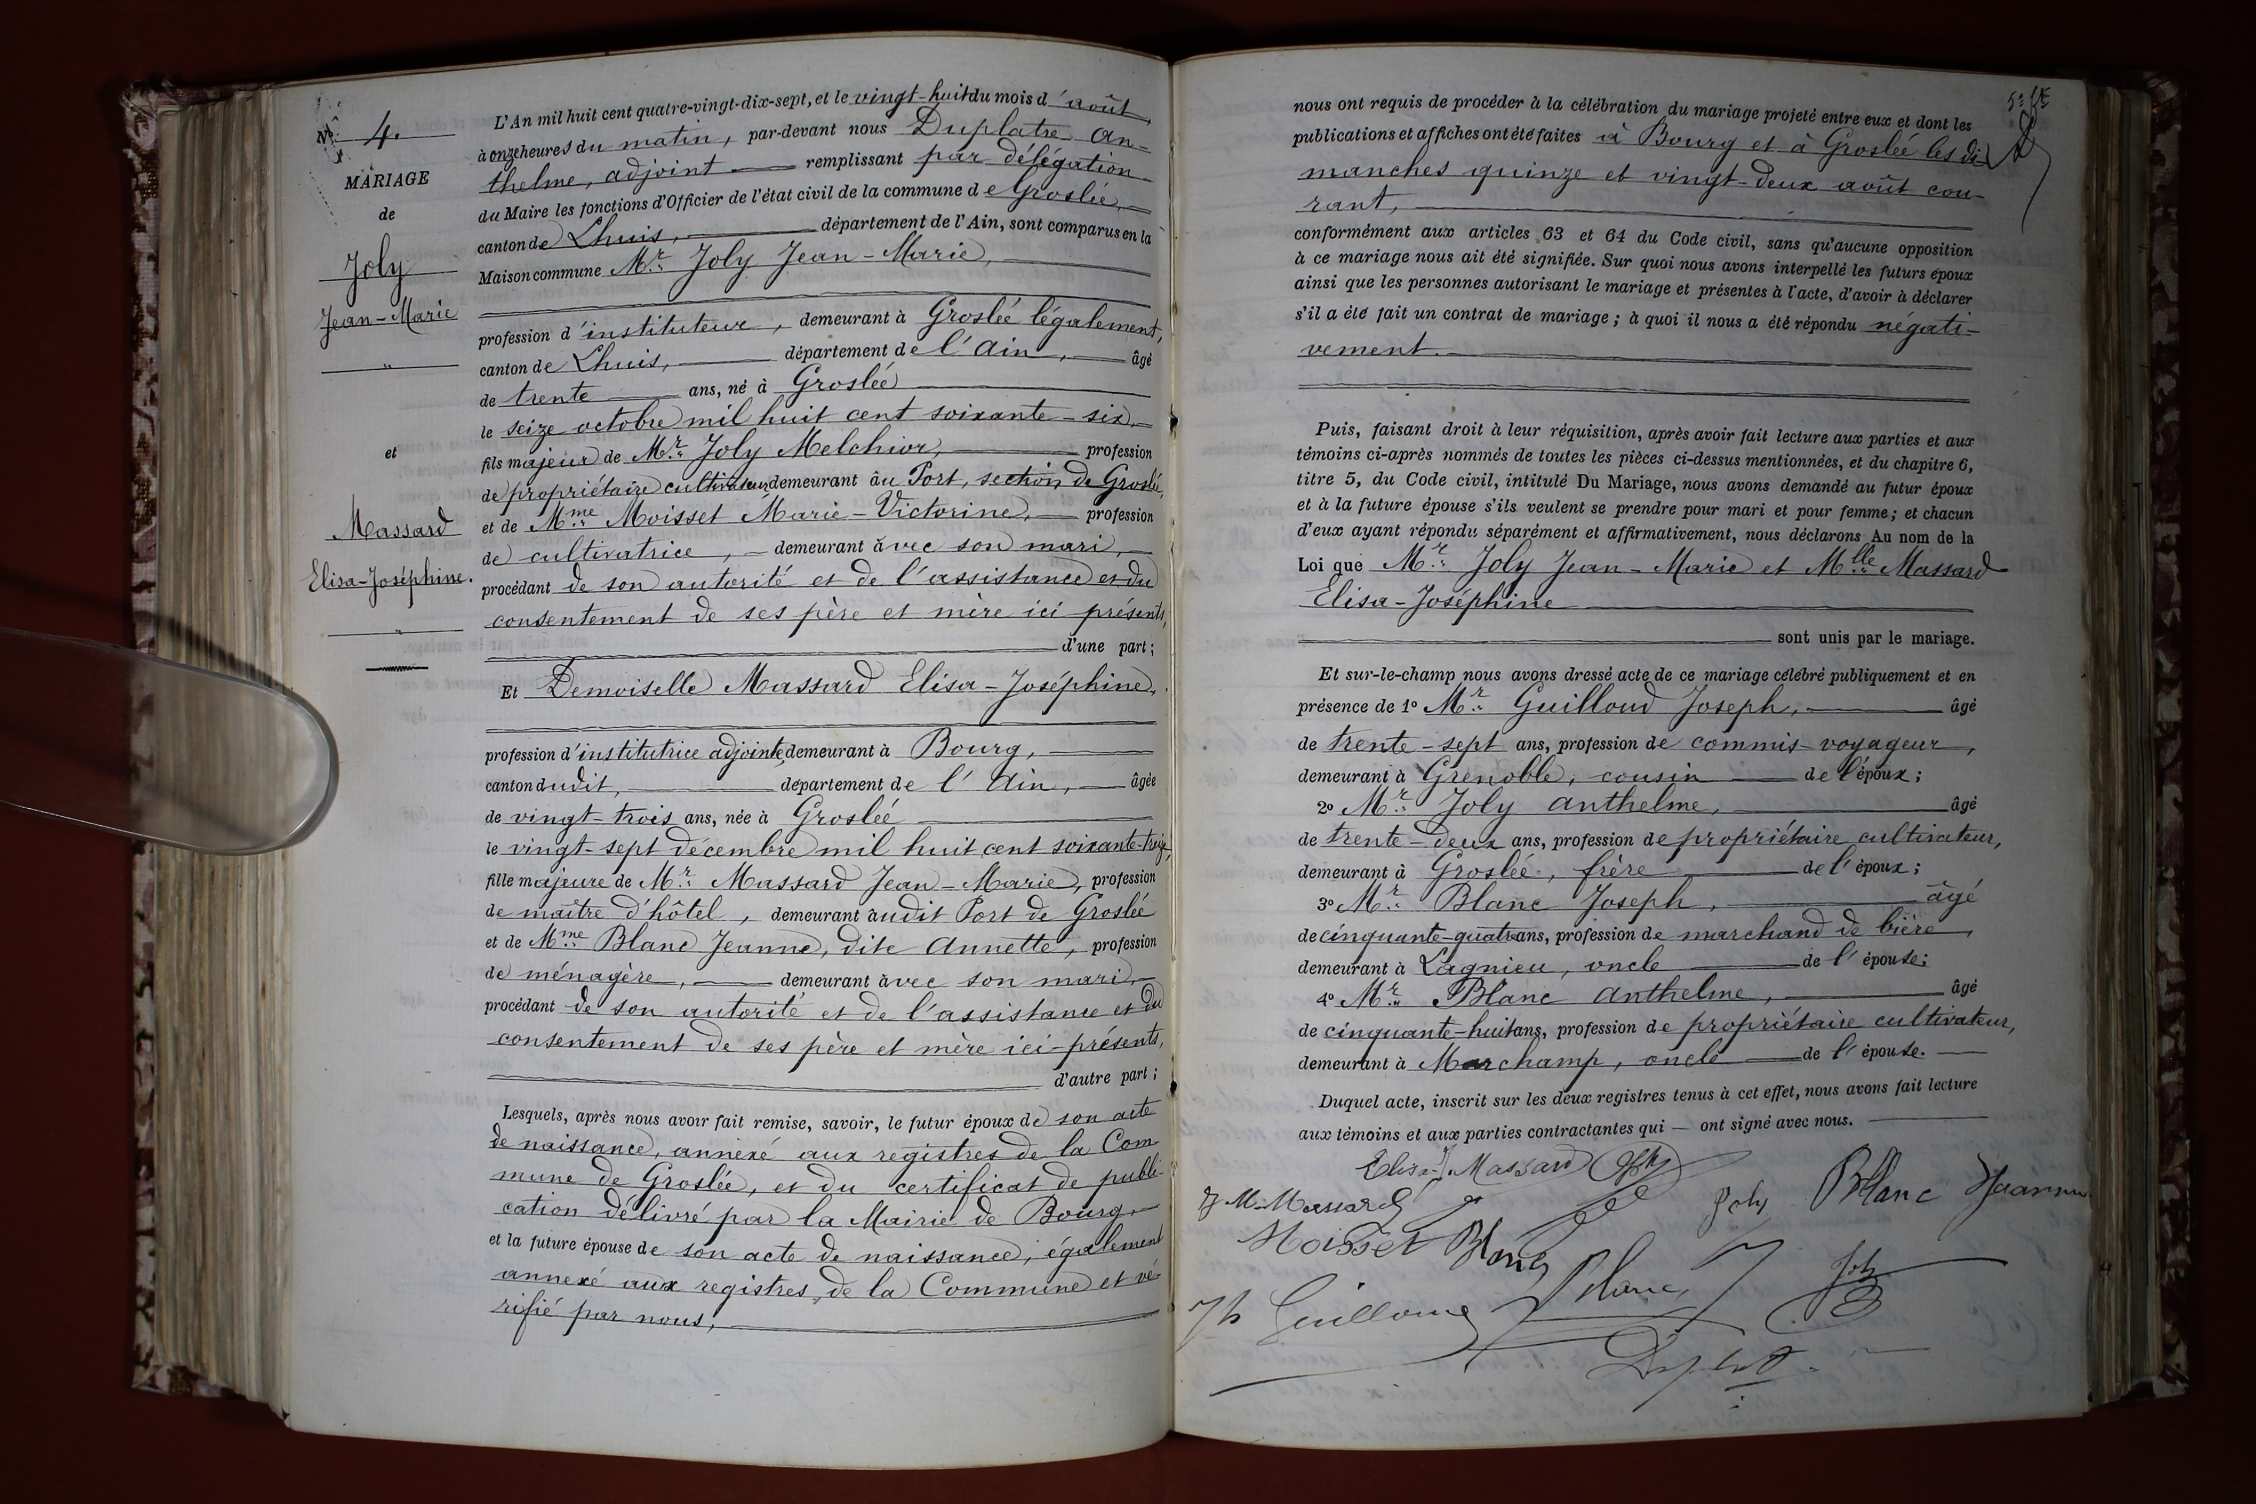 N° 4.
MARIAGE
de
Joly
Jean-Marie
et
Massard
Elisa-Joséphine.
L'An mil huit cent quatre-vingt-dix-sept, et le vingt-huit du mois d'août,
à onze heures du matin, par-devant nous Duplatre An-
thelme, adjoint remplissant par délégation
du Maire les fonctions d'Officier de l'état civil de la commune de Groslée,
canton de Lhuis, département de l'Ain, sont comparus en la
Maison commune Mr Joly Jean-Marie,
profession d'instituteur, demeurant à Groslée légalement,
canton de Lhuis, département de l'Ain, âgé
de trente ans, né à Groslée
le seize octobre mil huit cent soixante-six,
fils majeur de Mr Joly Melchior, profession
de propriétaire cultivateur demeurant au Port, section de Groslée,
et de Mme Moisset Marie-Victorine, profession
de cultivatrice, demeurant avec son mari,
procédant de son autorité et de l'assistance et du
consentement de ses père et mère ici présents,
d'une part;
Et Demoiselle Massard Elisa-Joséphine,
profession d'institutrice adjointe, demeurant à Bourg,
canton dudit, département de l'Ain, âgée
de vingt-trois ans, née à Groslée
le vingt-sept décembre mil huit cent soixante-treize,
fille majeure de Mr Massard Jean-Marie, profession
de maître d'hôtel, demeurant audit Port de Groslée
et de Mme Blanc Jeanne, dite Annette, profession
de ménagère, demeurant avec son mari,
procédant de son autorité et de l'assistance et du
consentement de ses père et mère ici-présents,
d'autre part;
Lesquels, après nous avoir fait remise, savoir, le futur époux de son acte
de naissance, annexé aux registres de la Com
mune de Groslée, et du certificat de publi-
cation délivré par la Mairie de Bourg,
et la future épouse de son acte de naissance, également
annexé aux registres de la Commune et vé-
rifié par nous,
nous ont requis de procéder à la célébration du mariage projeté entre eux et dont les
publications et affiches ont été faites à Bourg et à Groslée les di
manches quinze et vingt-deux août cou-
rant,
conformément aux articles 63 et 64 du Code civil, sans qu'aucune opposition
à ce mariage nous ait été signifiée. Sur quoi nous avons interpellé les futurs époux
ainsi que les personnes autorisant le mariage et présentes à l'acte, d'avoir à déclarer
s'il a été fait un contrat de mariage; à quoi il nous a été répondu négati-
vement.
Puis, faisant droit à leur réquisition, après avoir fait lecture aux parties et aux
témoins ci-après nommés de toutes les pièces ci-dessus mentionnées, et du chapitre 6,
titre 5, du Code civil, intitulé Du Mariage, nous avons demandé au futur époux
et à la future épouse s'ils veulent se prendre pour mari et pour femme; et chacun
d'eux ayant répondu séparément et affirmativement, nous déclarons Au nom de la
Loi que Mr Joly Jean-Marie et Mlle Massard
Elisa-Joséphine
sont unis par le mariage.
Et sur-le-champ nous avons dressé acte de ce mariage célébré publiquement et en
présence de 1° Mr Guilloud Joseph, âgé
de trente-sept ans, profession de commis-voyageur,
demeurant à Grenoble, cousin de l'époux;
2° Mr Joly Anthelme, âgé
de trente-deux ans, profession de propriétaire cultivateur,
demeurant à Groslée, frère de l'époux;
3° Mr Blanc Joseph, âgé
de cinquante-quatre ans, profession de marchand de bière,
demeurant à Lagnieu, oncle de l'épouse;
4° Mr Blanc Anthelme, âgé
de cinquante-huit ans, profession de propriétaire cultivateur,
demeurant à Marchamp, oncle de l'épouse.
Duquel acte, inscrit sur les deux registres tenus à cet effet, nous avons fait lecture
aux témoins et aux parties contractantes qui ont signé avec nous.
Elisa J. Massard
J M Massard Joly Blanc Jeanne
Moisset Blanc
Jh Guilloud Blanc Joly